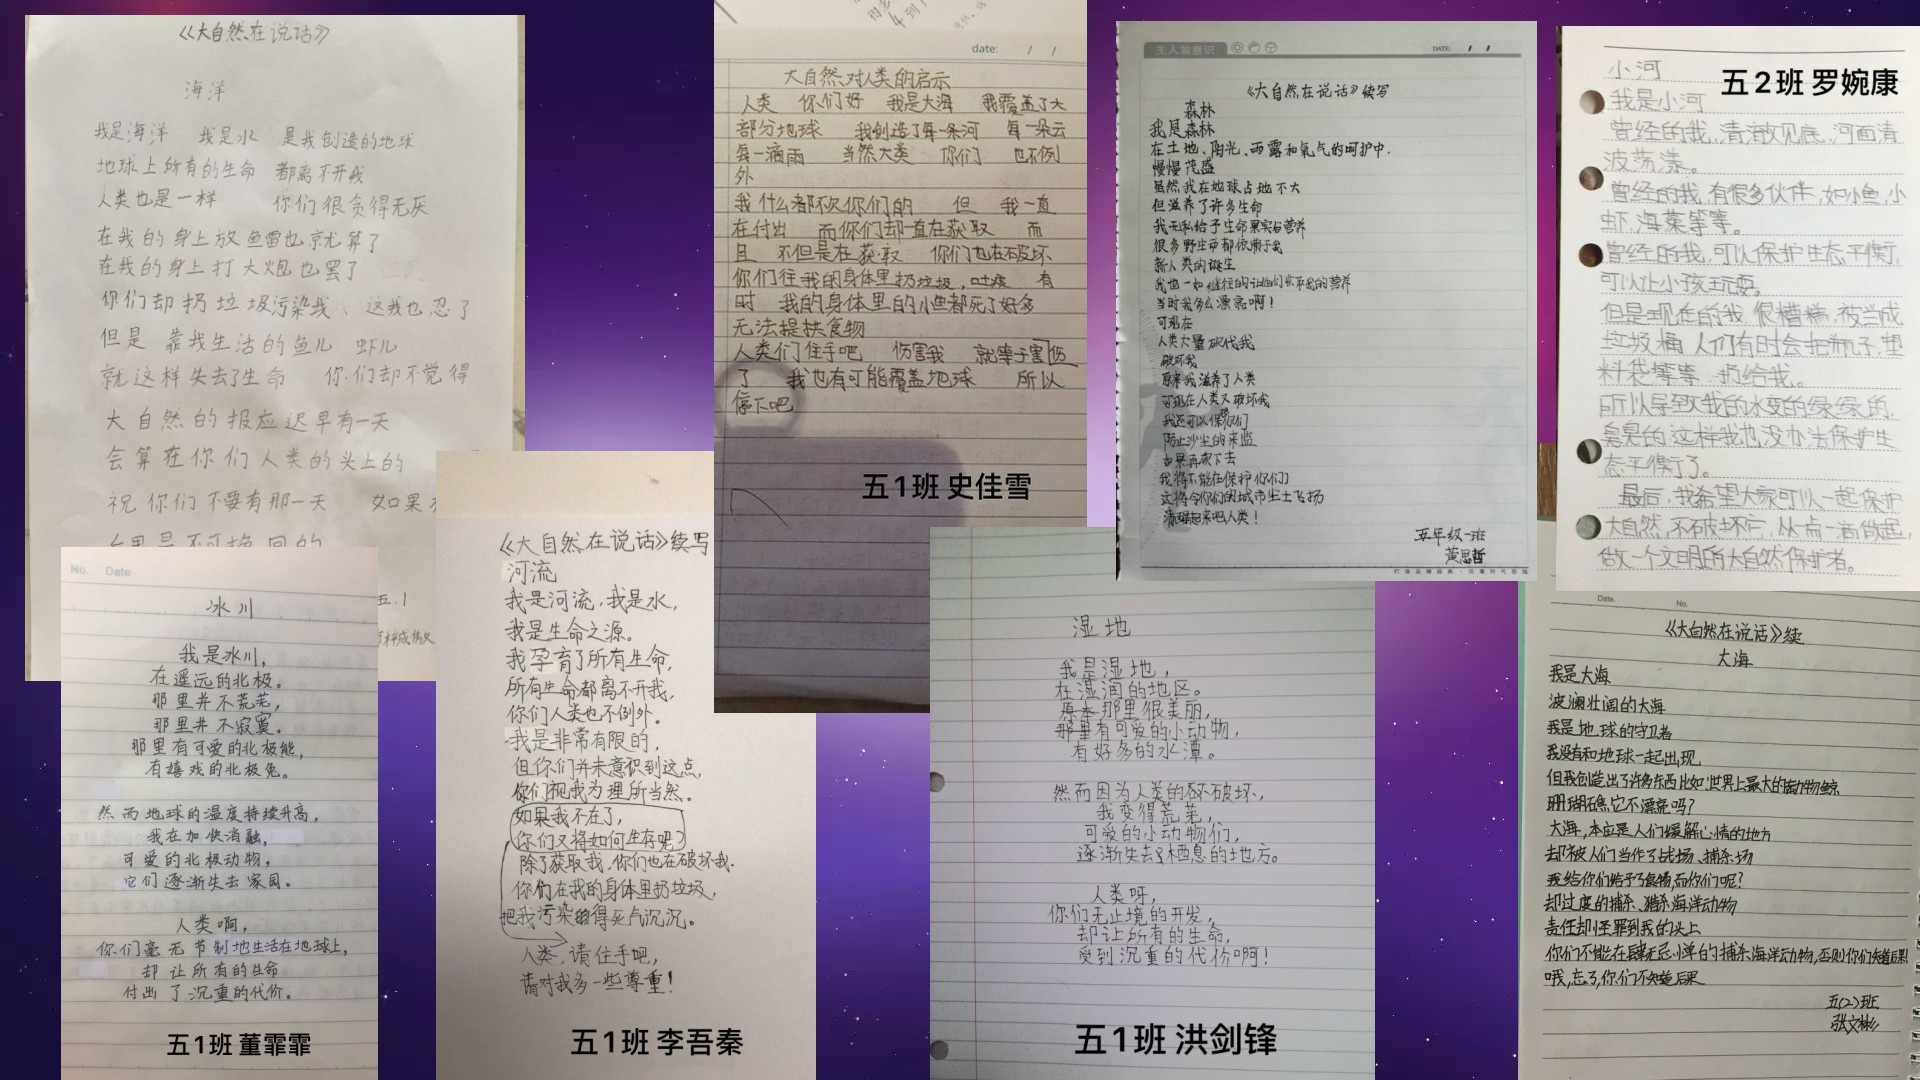 《大自然在说话》
海洋
我是海洋 我是水 是我创造的地球
地球上所有的生命 都离不开我
人类也是一样 你们很贪得无厌
在我的身上放鱼雷也就算了
在我的身上打大炮也罢了
你们却扔垃圾污染我 这我也忍了
但是 靠我生活的鱼儿 虾儿
就这样失去了生命 你们却不觉得
大自然的报应迟早有一天
会算在你们人类的头上的
祝你们不要有那一天 如果
五.1
No. Date
冰川
我是冰川,
在遥远的北极。
那里并不荒芜,
那里并不寂寞。
那里有可爱的北极熊,
有嬉戏的北极兔。
然而地球的温度持续升高,
我在加快消融,
可爱的北极动物,
它们逐渐失去家园。
人类啊,
你们毫无节制地生活在地球上,
却让所有的生命
付出了沉重的代价。
五1班 董霏霏
《大自然在说话》续写
河流
我是河流,我是水,
我是生命之源。
我孕育了所有生命,
所有生命都离不开我,
你们人类也不例外。
我是非常有限的,
但你们并未意识到这点,
你们视我为理所当然。
如果我不在了,
你们又将如何生存呢?
除了获取我,你们也在破坏我.
你们在我的身体里扔垃圾,
把我污染得死气沉沉。
人类,请住手吧,
请对我多一些尊重!
五1班 李吾秦
date: / /
大自然对人类的启示
人类 你们好 我是大海 我覆盖了大
部分地球 我创造了每一条河 每一朵云
每一滴雨 当然人类 你们 也不例
外
我什么都不欠你们的 但 我一直
在付出 而你们却一直在获取 而
且 不但是在获取 你们也在破坏
你们往我的身体里扔垃圾,吐痰 有
时 我的身体里的小鱼都死了好多
无法提供食物
人类们住手吧 伤害我 就等于害
了 我也有可能覆盖地球 所以
停下吧
五1班 史佳雪
湿地
我是湿地,
在湿润的地区。
原本那里很美丽,
那里有可爱的小动物,
有好多的水潭。
然而因为人类的破坏,
我变得荒芜,
可爱的小动物们,
逐渐失去了栖息的地方。
人类呀,
你们无止境的开发,
却让所有的生命,
受到沉重的代价啊!
五1班 洪剑锋
主人翁意识
DATE: / /
《大自然在说话》续写
森林
我是森林
在土地、阳光、雨露和氧气的呵护中.
慢慢茂盛
虽然我在地球占地不大
但滋养了许多生命
我无私给予生命果实与营养
很多野生命都依赖于我
新人类的诞生
我也一如继往的让他们
当时我多么漂亮啊!
可现在
人类大量砍伐我
破坏我
原来我滋养了人类
可现在人类又破坏我
我还可以保你们
防止沙尘的来临
如果再砍下去
我将不能在保护你们
这将令你们的城市尘土飞扬
清醒起来吧人类!
五年级一班
黄思哲
五2班 罗婉康
小河
我是小河
曾经的我,清澈见底,河面清
波荡漾。
曾经的我,有很多伙伴,如小鱼,小
虾,海藻等等。
曾经的我,可以保护生态平衡,
可以让小孩玩耍。
但是现在的我,很糟糕,被当成
垃圾桶,人们有时会把瓶子,塑
料袋等等,扔给我。
所以导致我的水变的绿绿的,
臭臭的,这样我也没办法保护生
态平衡了。
最后,我希望大家可以一起保护
大自然,不破坏它,从点一滴做起,
做一个文明的大自然保护者。
Date. No.
《大自然在说话》续
大海
我是大海
波澜壮阔的大海
我是地球的守卫者
我没有和地球一起出现
但我创造出了许多东西比如:世界上最大的动物鲸
珊瑚礁它不漂亮吗?
大海,本应是人们缓解心情的地方
却被人们当作了战场、捕杀场
我给你们给予了食物,而你们呢?
却过度的捕杀、猎杀海洋动物
责任却怪罪到我的头上
你们不能在肆无忌惮的捕杀海洋动物,否则你们知道后果!
哦,忘了,你们不知道后果
五(2)班
张文彬